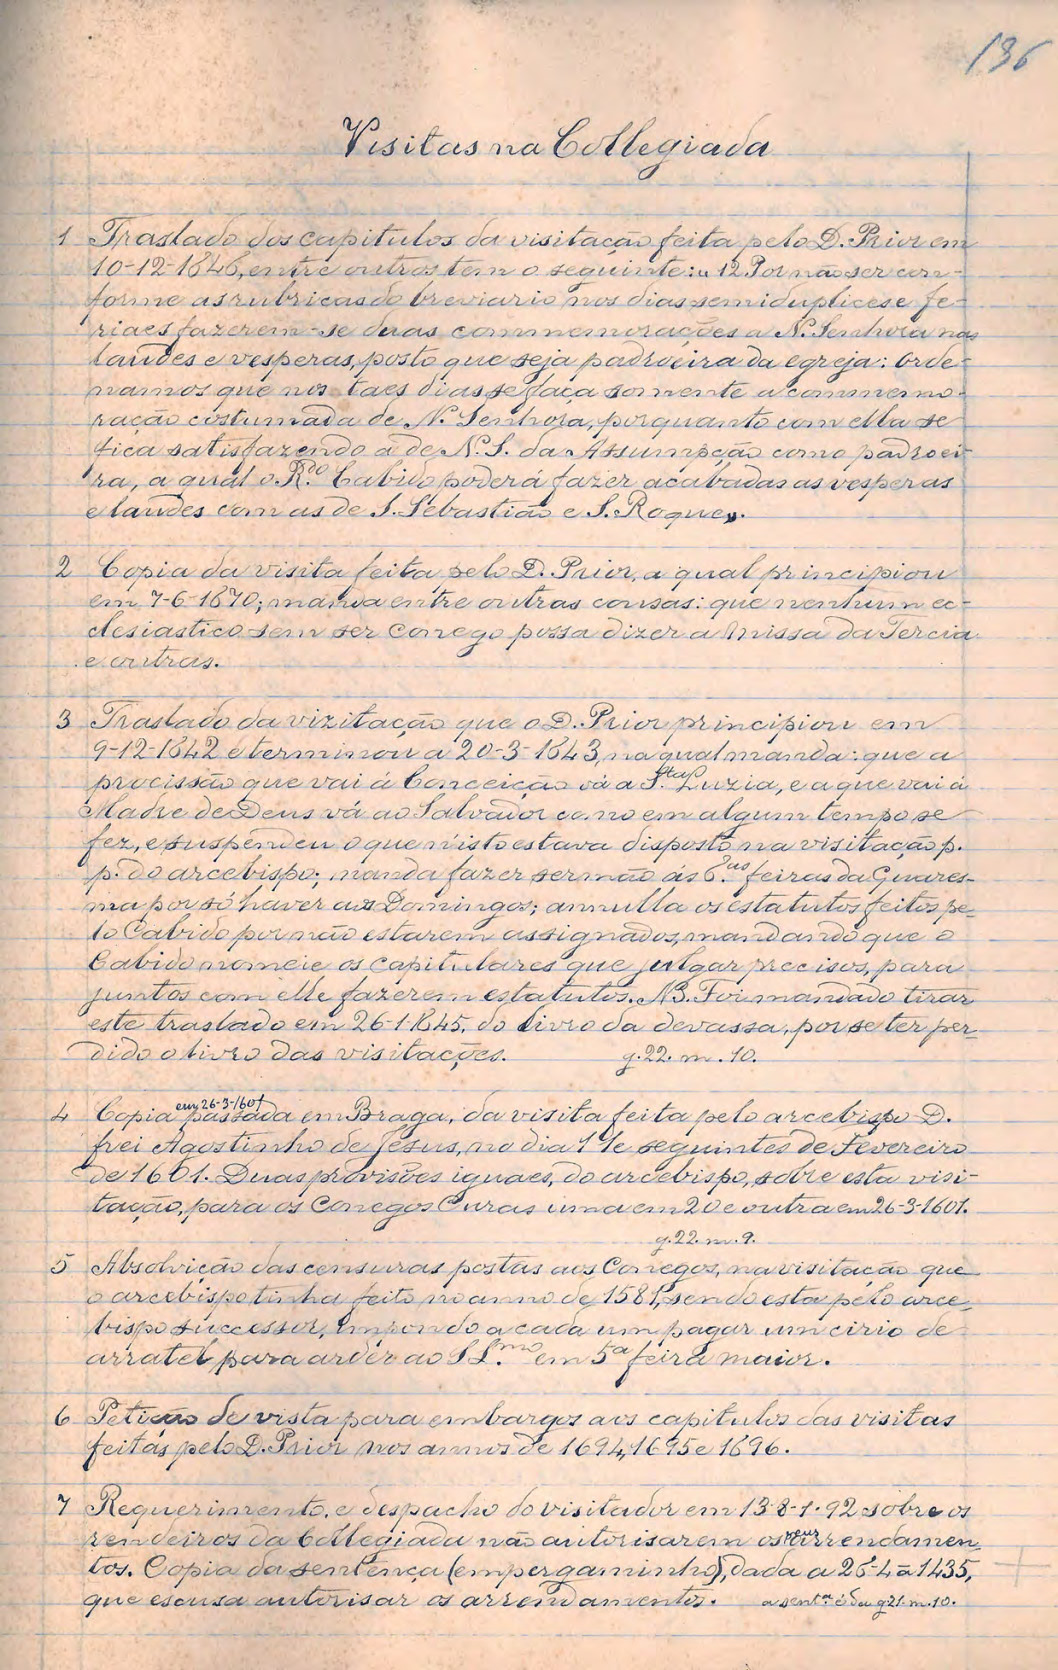 136
Visitas na Collegiada
1 Traslado dos capitulos da visitação feita pelo D. Prior em
10-12-1846, entre outros tem o seguinte: « 12. Por não ser con-
forme as rubricas do breviario nos dias semiduplices e fe-
riaes fazerem-se duas commemorações a N. Senhora nas
laudes e vesperas, posto que seja padroeira da egreja: Orde-
namos que nos taes dias se faça somente a commemo-
ração costumada de N. Senhora, porquanto com ella se
fica satisfazendo a de N. S. da Assumpção como padroei-
ra, a qual o R.do Cabido poderá fazer acabadas as vesperas
e laudes com as de S. Sebastião e S. Roque».
2 Copia da visita feita pelo D. Prior, a qual principiou
em 7-6-1870; manda entre outras cousas: que nenhum ec-
clesiastico sem ser conego possa dizer a Missa da Tercia
e outras.
3 Traslado da vizitação que o D. Prior principiou em
9-12-1842 e terminou a 20-3-1843, na qual manda: que a
procissão que vai á Conceição vá a S.ta Luzia, e a que vai á
Madre de Deus vá ao Salvador como em algum tempo se
fez, e suspendeu o que n'isto estava disposto na visitação p.
p. do arcebispo; manda fazer sermão ás 6.as feiras da Quares-
ma por só haver aos Domingos; annulla os estatutos feitos pe-
lo Cabido por não estarem assignados, mandando que o
Cabido nomeie os capitulares que julgar precisos, para
juntos com elle fazerem estatutos. NB. Foi mandado tirar
este traslado em 26-1-1845, do livro da devassa, por se ter per-
dido o livro das visitações. g. 22. m. 10.
4 Copia em 26-3-1601 passada em Braga, da visita feita pelo arcebispo D.
frei Agostinho de Jesus, no dia 11 e seguintes de Fevereiro
de 1601. Duas provisões iguaes, do arcebispo, sobre esta visi-
tação, para os Conegos Curas uma em 20 e outra em 26-3-1601.
g. 22. m. 9.
5 Absolvição das censuras postas aos Conegos, na visitação que
o arcebispo tinha feito no anno de 1581, sendo esta pelo arce-
bispo successor, impondo a cada um pagar um cirio de
arratel para arder ao SS.mo em 5a feira maior.
6 Petição de vista para embargos aos capitulos das visitas
feitas pelo D. Prior nos annos de 1694, 1695 e 1696.
7 Requerimento, e despacho do visitador em 13-8-1792 sobre os
rendeiros da Collegiada não autorisarem os seus arrendamen-
tos. Copia da sentença (em pergaminho), dada a 26-4-1435,
que escusa autorisar os arrendamentos. a sent.ça é da g 21. m. 10.